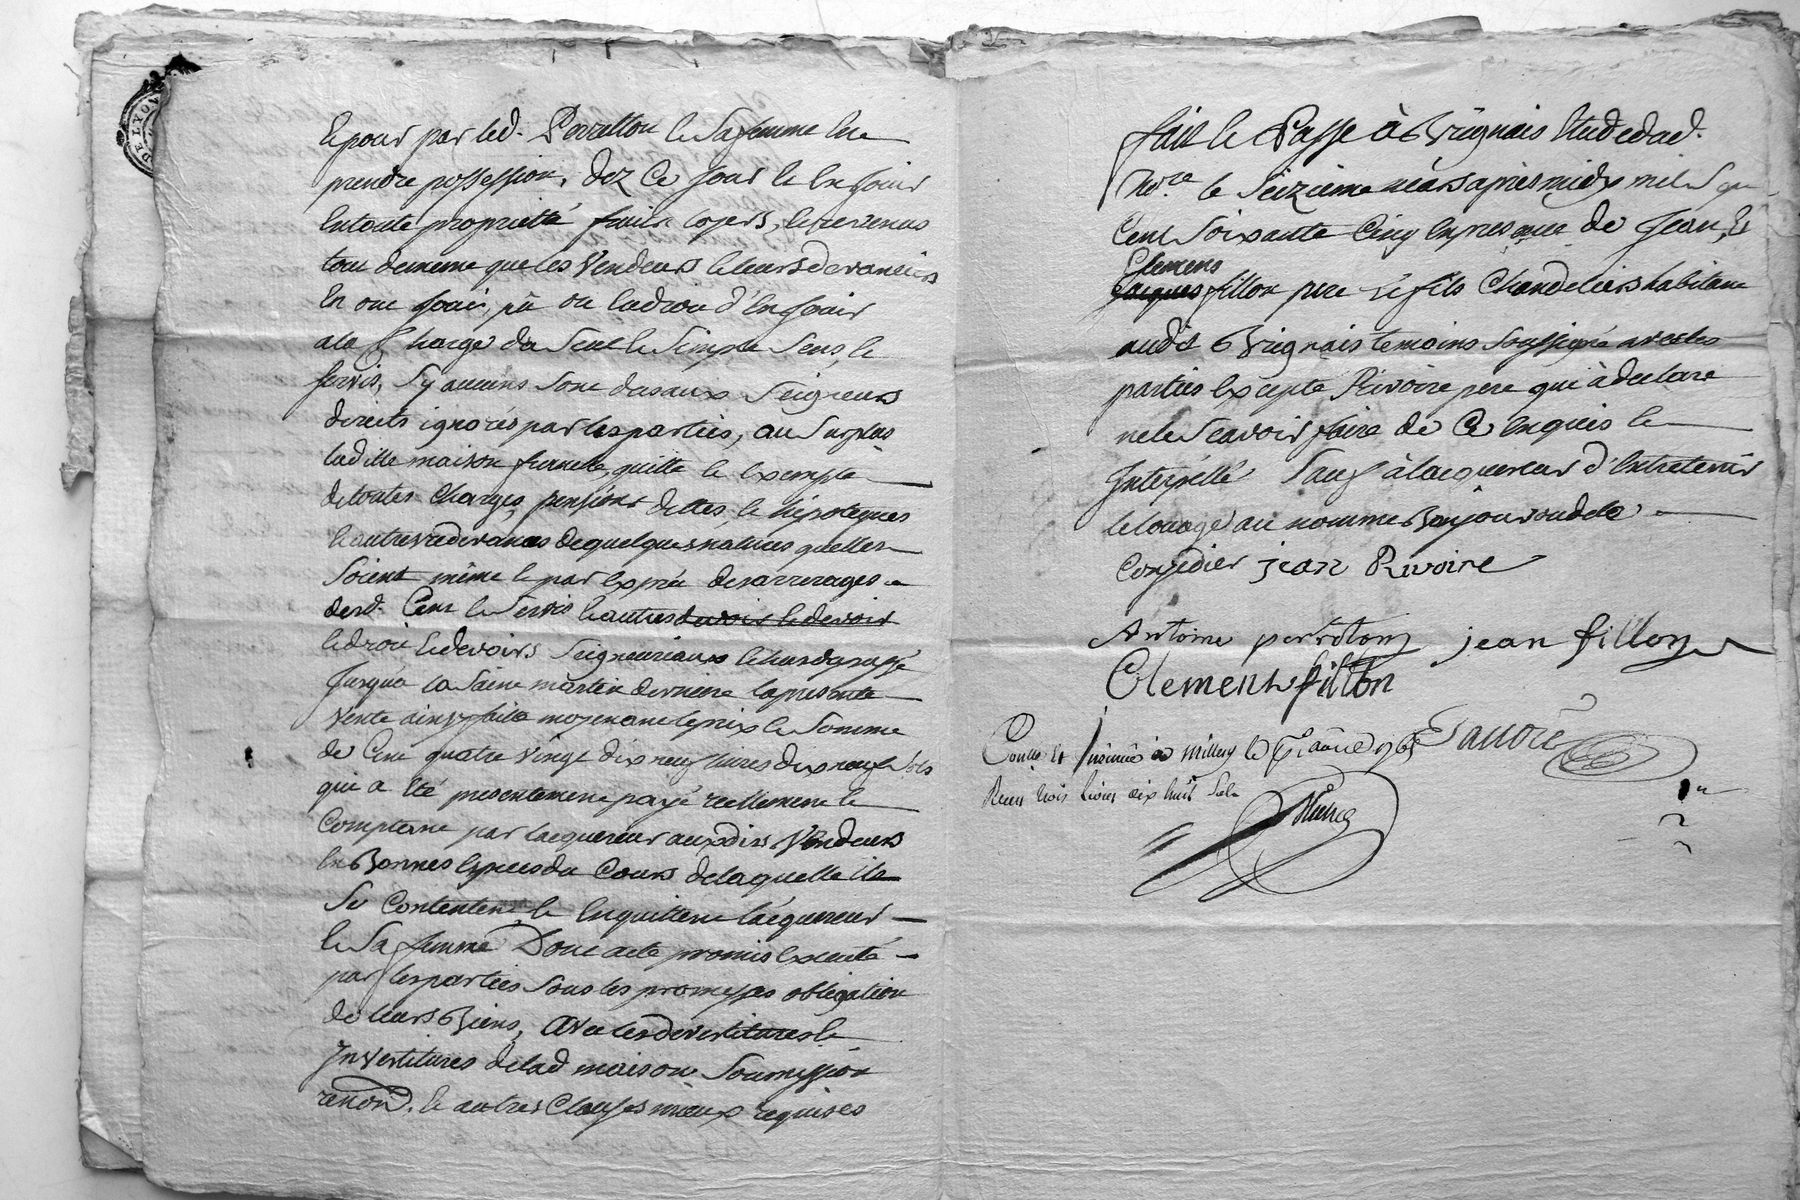 DE LYON
Et pour par led. Perratton et sa femme en
prendre possession, dez ce jour et en jouir
en toute proprietté fruits loyers, et revenus
tout de meme que les vendeurs et leurs devanciers
en ont joui, pû ou eu droit d'en jouir
a la charge du sent et simple sens, et
servis, s'y aucuns sont dus aux seigneurs
directs ignorés par les parties, au surplus
laditte maison franche, quitte et exempte
de toutes charges, pensions dettes, et hipoteques
et autres redevances de quelques natures quelles
soient même et par exprès des arrerages
desd. Cens et servis et autres devoir et devoir
et droit et devoirs seigneuriaux echus du passé
jusqu'a la saint martin derniere la presente
vente ainsy faite moyenant le prix et somme
de cent quatre vingt dix neuf livres dix neuf sols
qui a été presentement payé reellement et
comptant par lacquereur auxdits vendeurs
en bonnes espèces du cours de laquelle ils
se contentent et en quittent lacquereur
et sa femme Dont acte promis executé
par les parties sous les promesses obligation
de leurs biens, avec les devestitures et
Investitures de lad maison soumission
renon. et autres clauses mieux requises
fait et Passé à Brignais Etude dud.
No.re le seizieme mars apres midy mil sept
Cent soixante cinq en presence de Jean, et
Clemens
Jacques fillon pere et fils Chandeliers habitant
audit Brignais temoins soussigné avec les
parties excepté Rivoire pere qui à declaré
ne le sçavoir faire de ce enquis et
Interpellé sauf à lacquereur d'entretenir
le louage au nommé Bonjour ou de le
congedier jean Rivoire
Antoine perrotton jean fillon
Clement fillon
Contlé et Insinué a millery le 1765
Recu trois livres dix huit sols